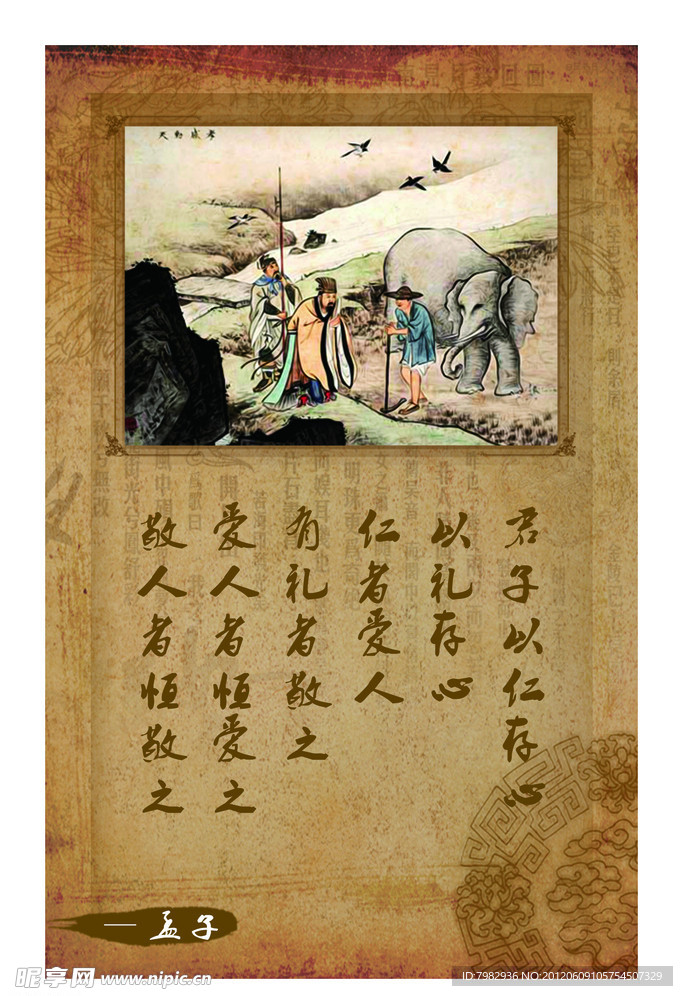 孝感動天
君子以仁存心
以礼存心
仁者爱人
有礼者敬之
爱人者恒爱之
敬人者恒敬之
— 孟子
昵享网 www.nipic.cn
ID:7982936 NO:20120609105754507329